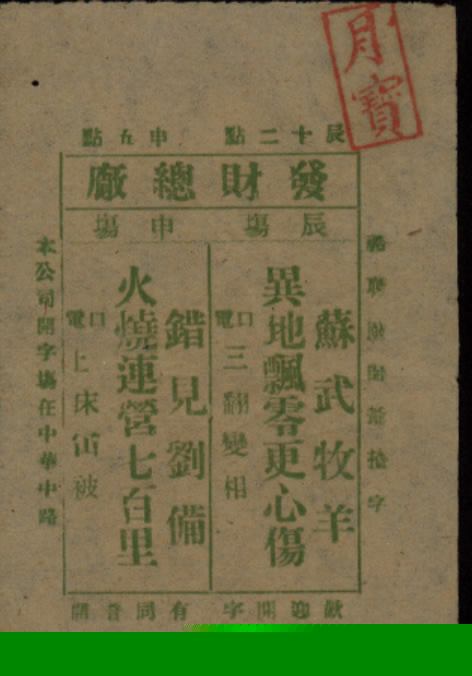 月寶
辰十二點 申五點
發財總廠
辰塲 申塲
蘇武牧羊
異地飄零更心傷
電口三翻變相
錯見劉備
火燒連營七百里
電口上床冚被
歡迎開字 有同音開
本公司開字塲在中華中路